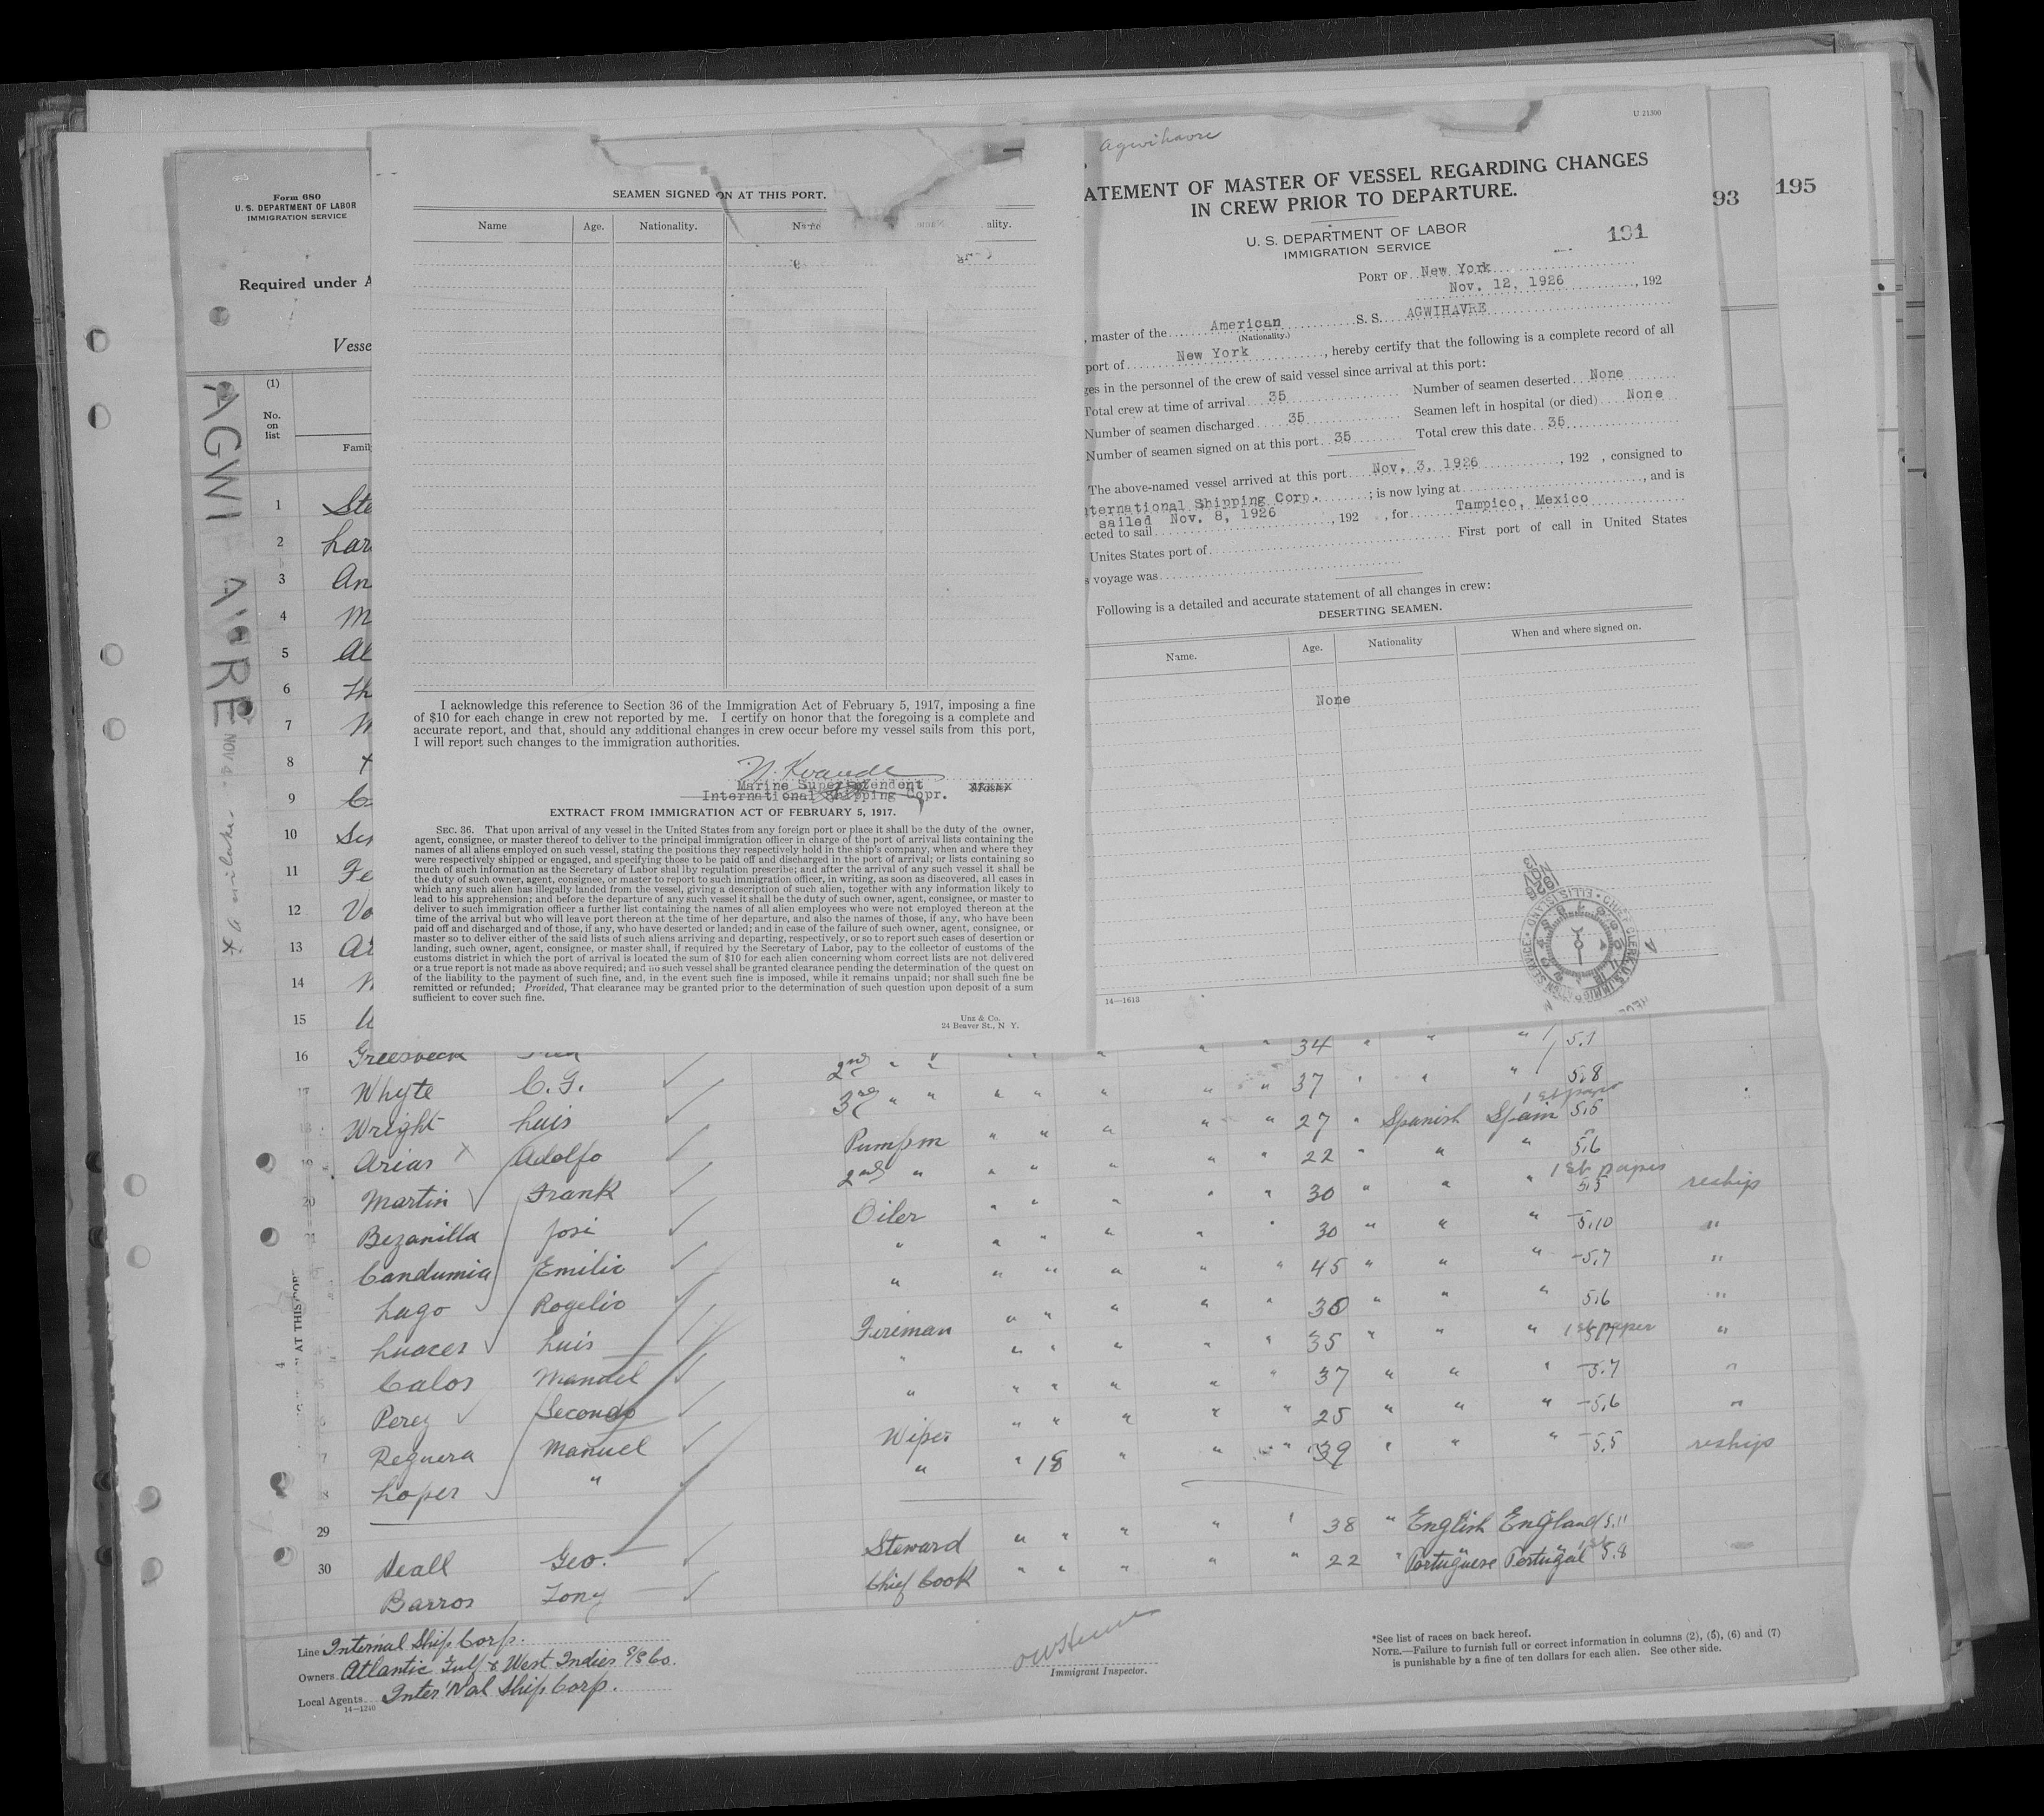 Form 680
U. S. DEPARTMENT OF LABOR
IMMIGRATION SERVICE
Required under A
Vesse
(1)
No.
on
list
Famil
AGWI
NOV
1 Ste
2 Lar
3 An
4 M
5 Al
6 Th
7 M
8
9
10
11 Fe
12 Va
13
14
15
SEAMEN SIGNED ON AT THIS PORT.
Name Age. Nationality. Name ality.
I acknowledge this reference to Section 36 of the Immigration Act of February 5, 1917, imposing a fine
of $10 for each change in crew not reported by me. I certify on honor that the foregoing is a complete and
accurate report, and that, should any additional changes in crew occur before my vessel sails from this port,
I will report such changes to the immigration authorities.
N. Kvande
Marine Superintendent
International Shipping Copr.
EXTRACT FROM IMMIGRATION ACT OF FEBRUARY 5, 1917.
SEC. 36. That upon arrival of any vessel in the United States from any foreign port or place it shall be the duty of the owner,
agent, consignee, or master thereof to deliver to the principal immigration officer in charge of the port of arrival lists containing the
names of all aliens employed on such vessel, stating the positions they respectively hold in the ship's company, when and where they
were respectively shipped or engaged, and specifying those to be paid off and discharged in the port of arrival; or lists containing so
much of such information as the Secretary of Labor shal lby regulation prescribe; and after the arrival of any such vessel it shall be
the duty of such owner, agent, consignee, or master to report to such immigration officer, in writing, as soon as discovered, all cases in
which any such alien has illegally landed from the vessel, giving a description of such alien, together with any information likely to
lead to his apprehension; and before the departure of any such vessel it shall be the duty of such owner, agent, consignee, or master to
deliver to such immigration officer a further list containing the names of all alien employees who were not employed thereon at the
time of the arrival but who will leave port thereon at the time of her departure, and also the names of those, if any, who have been
paid off and discharged and of those, if any, who have deserted or landed; and in case of the failure of such owner, agent, consignee, or
master so to deliver either of the said lists of such aliens arriving and departing, respectively, or so to report such cases of desertion or
landing, such owner, agent, consignee, or master shall, if required by the Secretary of Labor, pay to the collector of customs of the
customs district in which the port of arrival is located the sum of $10 for each alien concerning whom correct lists are not delivered
or a true report is not made as above required; and no such vessel shall be granted clearance pending the determination of the quest on
of the liability to the payment of such fine, and, in the event such fine is imposed, while it remains unpaid; nor shall such fine be
remitted or refunded; Provided, That clearance may be granted prior to the determination of such question upon deposit of a sum
sufficient to cover such fine.
Unz & Co.
24 Beaver St., N Y.
U 21300
Agwihavre
ATEMENT OF MASTER OF VESSEL REGARDING CHANGES
IN CREW PRIOR TO DEPARTURE.
93 195
U. S. DEPARTMENT OF LABOR
IMMIGRATION SERVICE
191
PORT OF New York
Nov. 12, 1926 , 192
, master of the American S. S. AGWIHAVRE
(Nationality.)
port of New York , hereby certify that the following is a complete record of all
ges in the personnel of the crew of said vessel since arrival at this port:
Total crew at time of arrival 35 Number of seamen deserted None
Number of seamen discharged 35 Seamen left in hospital (or died) None
Number of seamen signed on at this port 35 Total crew this date 35
The above-named vessel arrived at this port Nov. 3, 1926 , 192 , consigned to
ternational Shipping Corp. ; is now lying at , and is
sailed Nov. 8, 1926
ected to sail , 192 , for Tampico, Mexico
First port of call in United States
Unites States port of
s voyage was
Following is a detailed and accurate statement of all changes in crew:
DESERTING SEAMEN.
Name. Age. Nationality When and where signed on.
None
NOV 13 1926
CHIEF CLERK, U.S. IMMIGRATION SERVICE ELLIS ISLAND
14—1613
16 Greesbeck 2nd " " 34 " " " 5.7
Whyte C. G. 3rd " " " " " " " 37 " " " 5.8
1st paper
Wright Luis Pumpm " " " " " 27 " Spanish Spain 5.5
Arias x Adolfo 2nd " " " " " " 22 " " " 5.6
1st paper
20 Martin Frank Oiler " " " " " 30 " " " 5.5 reship
Bezanilla Jose " " " " " " 30 " " " 5.10 "
Candumia Emilio " " " " " " 45 " " " 5.7 "
Lago Rogelio Fireman " " " " " 30 " " " 5.6 "
Luaces Luis " " " " " " 35 " " " 1st paper "
Calos Manuel " " " " " " 37 " " " 5.7 "
Perez Secondo Wiper " " " " " 25 " " " 5.6 "
Reguera Manuel " " 18 " " " 39 " " " 5.5 reship
Loper "
29
Neall Geo. Steward " " " " " 38 " English England 5.11
30
Barros Tony Chief Cook " " " " " 22 " Portuguese Portugal 5.8
AT THIS POR
Line Internal Ship Corp.
Owners Atlantic Gulf & West Indies S/S Co.
Local Agents Inter'Nal Ship Corp.
14—1240
Immigrant Inspector.
*See list of races on back hereof.
NOTE.—Failure to furnish full or correct information in columns (2), (5), (6) and (7)
is punishable by a fine of ten dollars for each alien. See other side.